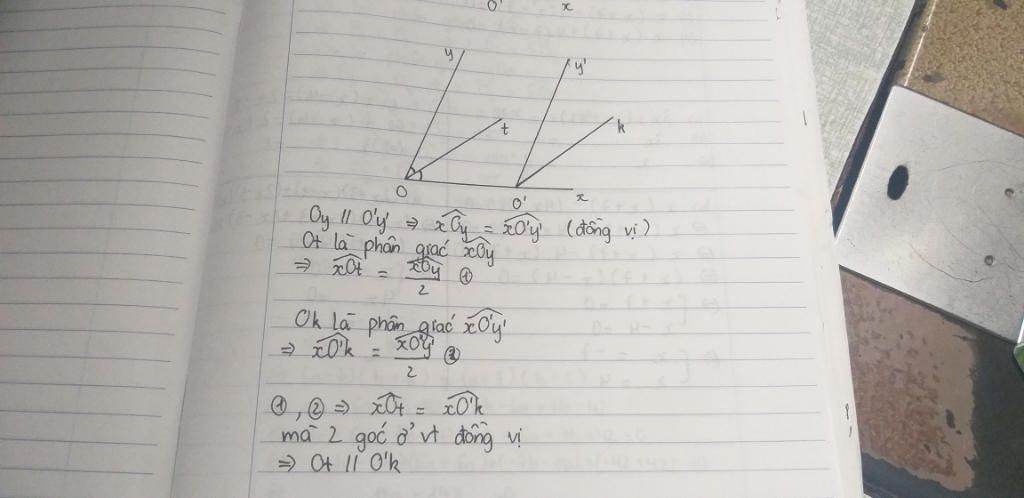 O' x
y y'
t k
O O' x
Oy // O'y' ⇒ xOy = xO'y' (đồng vị)
Ot là phân giác xOy
⇒ xOt = xOy/2 ①
Ok là phân giác xO'y'
⇒ xO'k = xO'y'/2 ②
①, ② ⇒ xOt = xO'k
mà 2 góc ở vt đồng vị
⇒ Ot // O'k